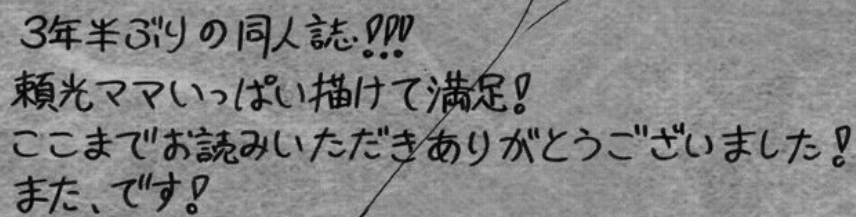 3年半ぶりの同人誌!!!
頼光ママいっぱい描けて満足!
ここまでお読みいただきありがとうございました!
また、です!